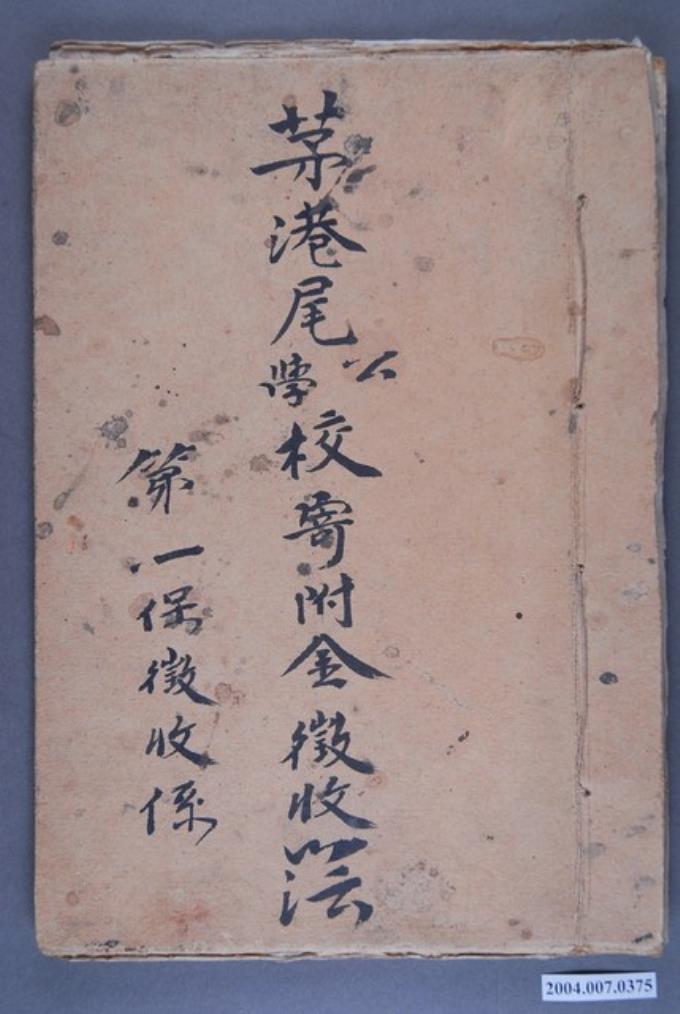 茅港尾公学校寄附金徵收簿
第一保徵收係
2004.007.0375